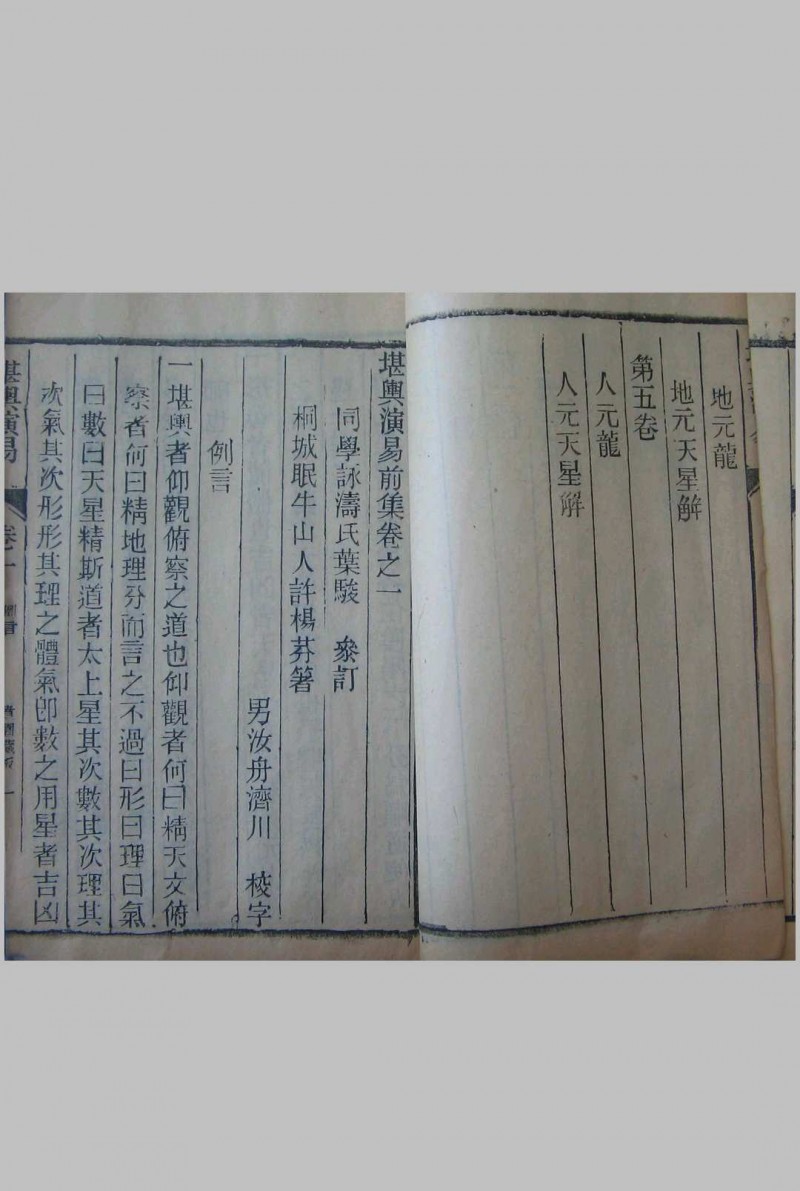 地元龍
地元天星解
第五卷
人元龍
人元天星解
堪輿演易前集卷之一
同學詠濤氏葉駿 叅訂
桐城眠牛山人許楊莽箸
男汝舟濟川 校字
例言
一堪輿者仰觀俯察之道也仰觀者何曰精天文俯
察者何曰精地理分而言之不過曰形曰理曰氣
曰數曰天星精斯道者太上星其次數其次理其
次氣其次形形其理之體氣卽數之用星者吉凶
堪輿演易 卷一 例言